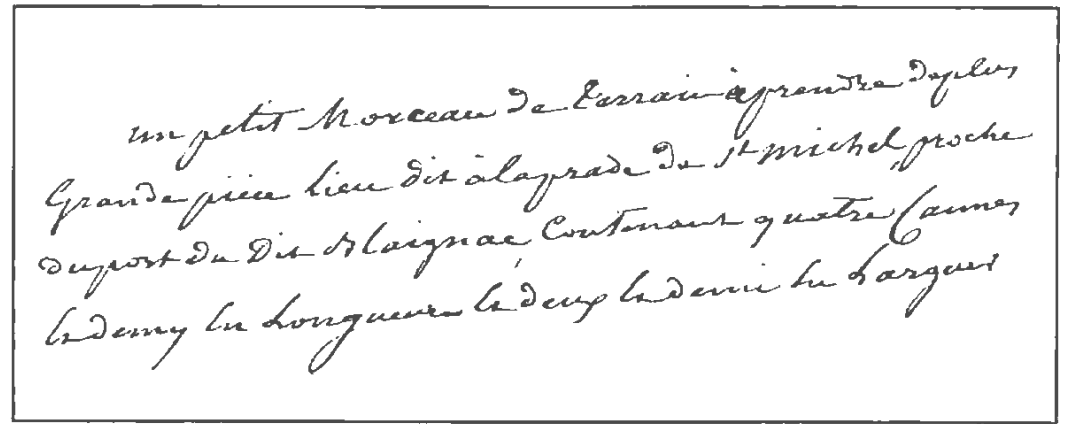 un petit Morceau de terrain à prendre de plus
Grande piece lieu dit à la prade de St michel, proche
du port du Dit Blaignac, Contenant quatre Cannes
Et demy En Longueur Et deux Et demi En Largeur